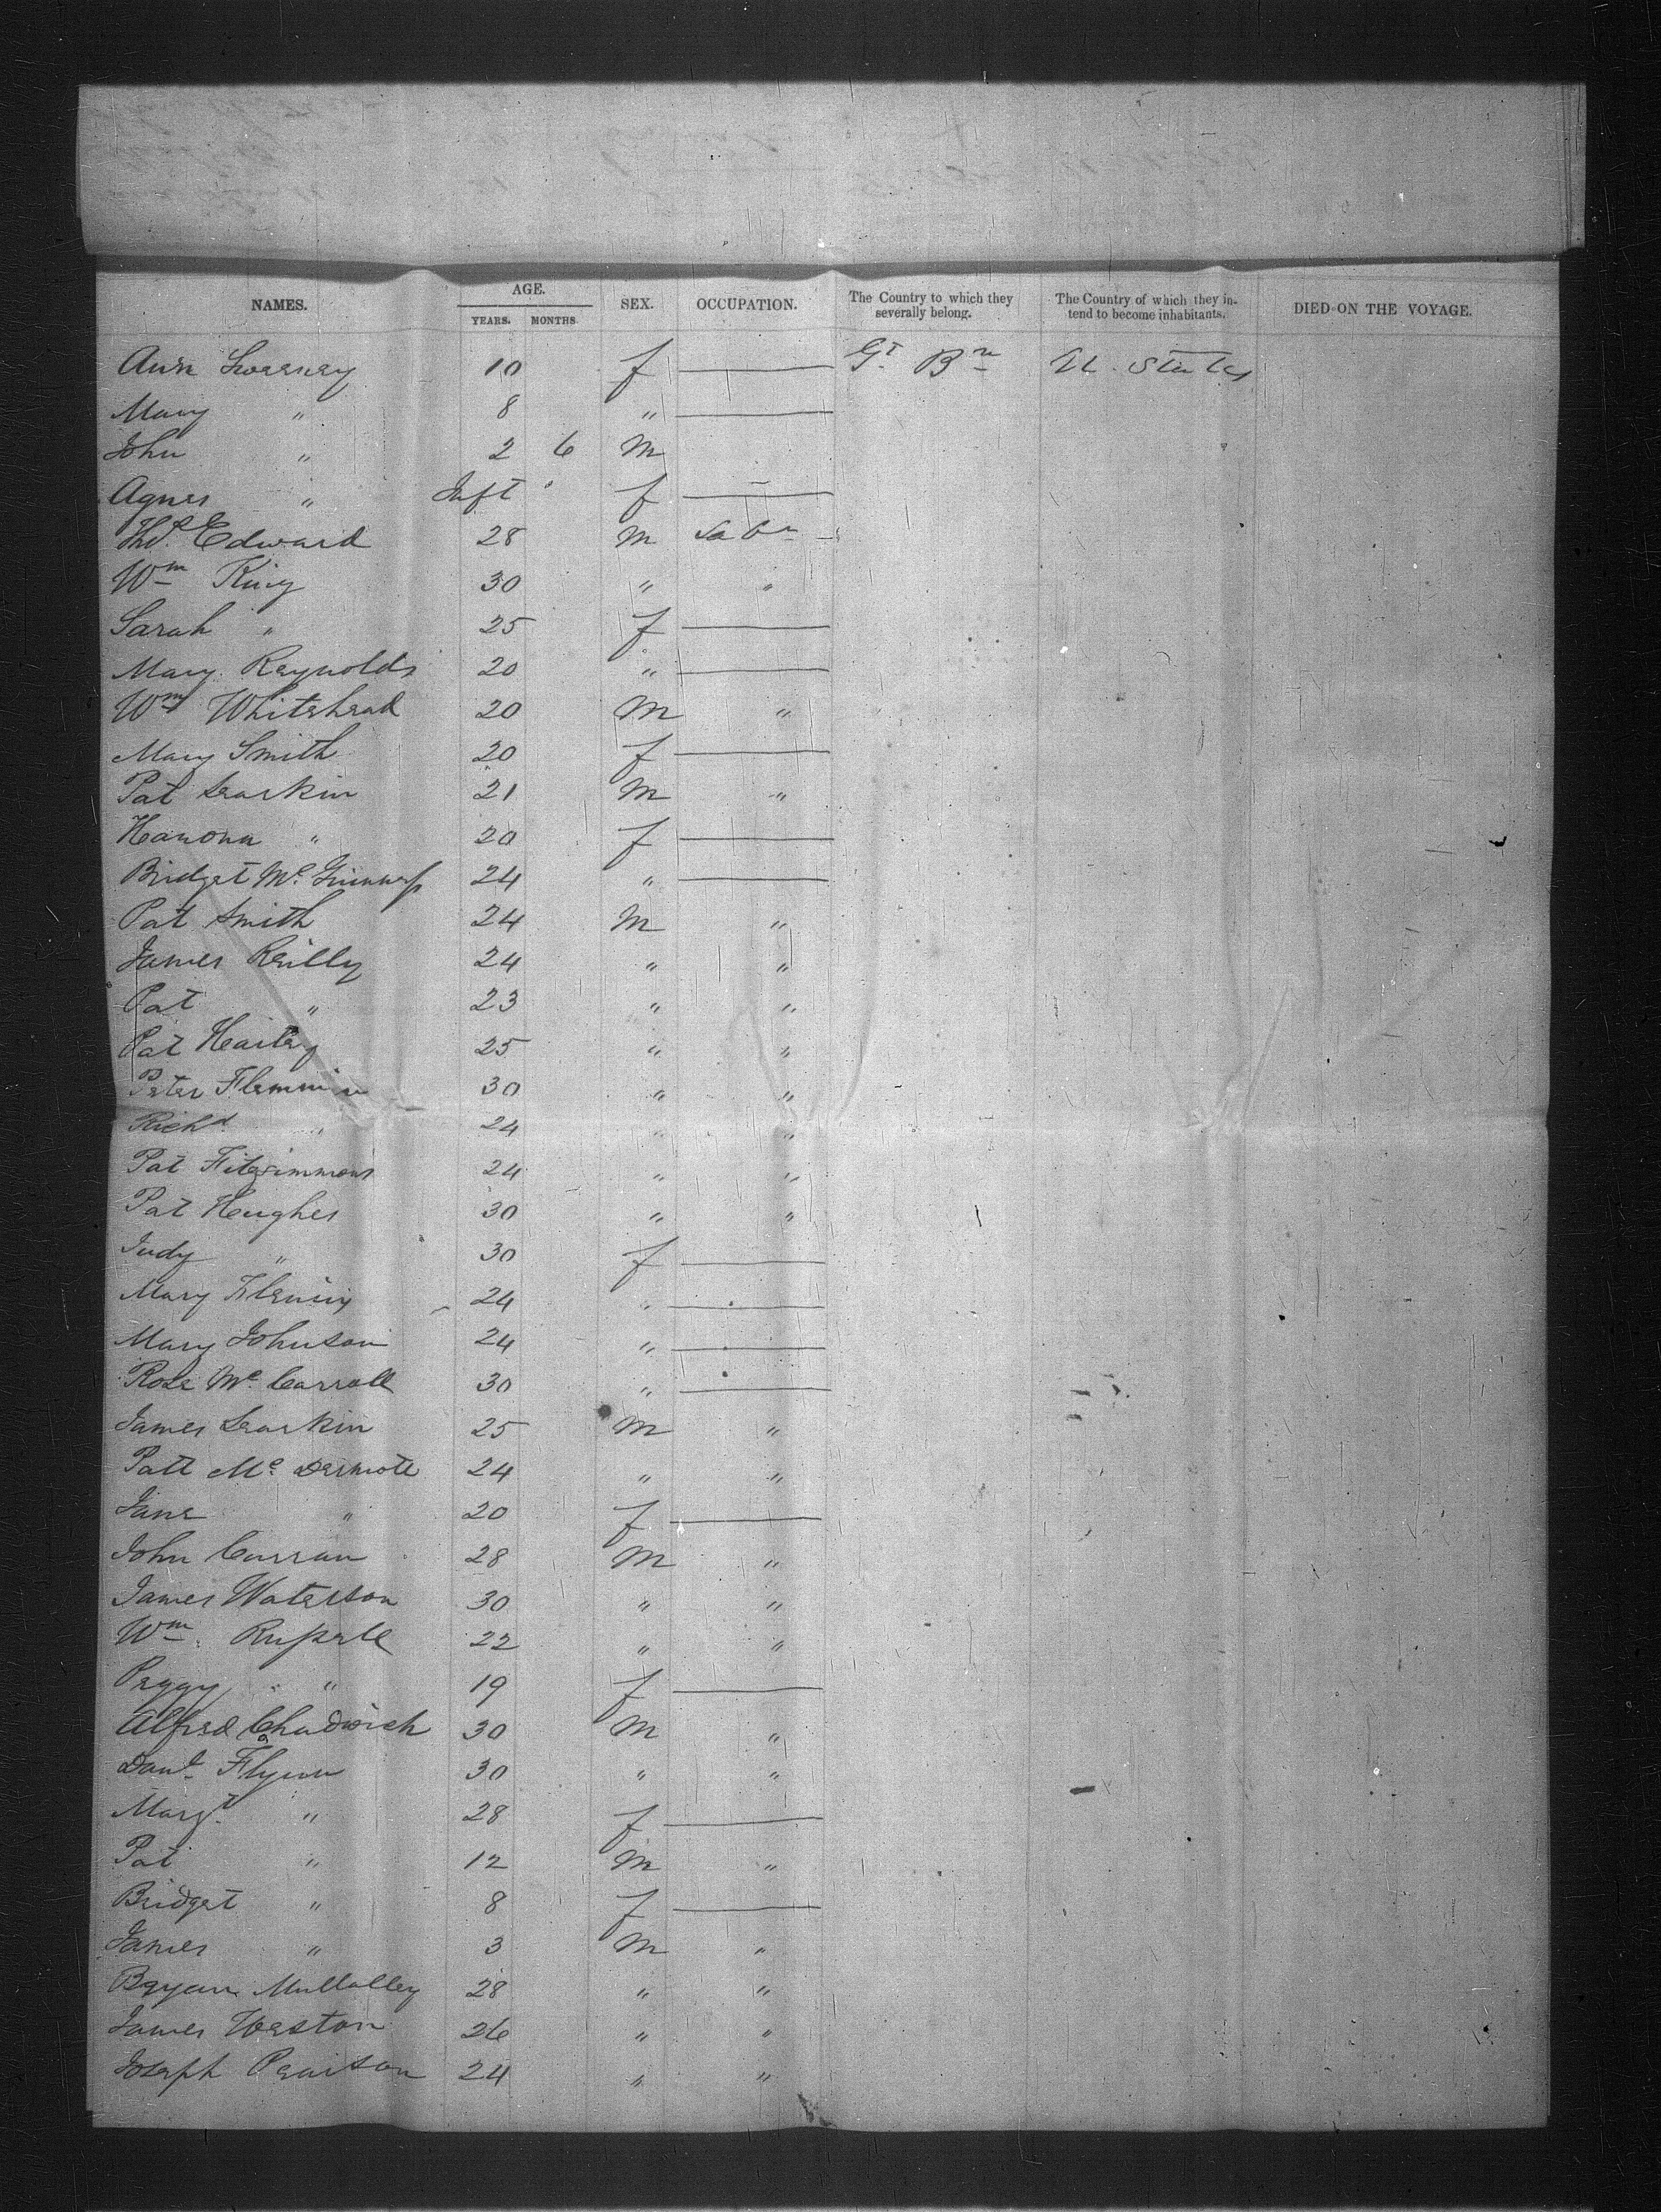 NAMES. AGE. SEX. OCCUPATION. The Country to which they severally belong. The Country of which they intend to become inhabitants. DIED ON THE VOYAGE.
YEARS. MONTHS
Ann Sweeney 10 f — Gt. Bn U. States
Mary " 8 " —
John " 2 6 M
Agnes " Inft f —
Thos. Edward 28 M Labr
Wm King 30 " "
Sarah " 25 f —
Mary Reynolds 20 " —
Wm Whitehead 20 M "
Mary Smith 20 f —
Pat Larkin 21 M "
Hanona " 20 f —
Bridget Mc 24 " —
Pat Smith 24 M "
James Reilly 24 " "
Pat " 23 " "
Pat 25 " "
Peter Flemmin 30 " "
Richd " 24 " "
Pat Fitzsimmons 24 " "
Pat Hughes 30 " "
Judy " 30 f —
Mary 24 " —
Mary Johnson 24 " —
Rose Mc Carroll 30 " —
James Larkin 25 M "
Patt Mc Dermott 24 " "
Jane " 20 f —
John Curran 28 M "
James Waterson 30 " "
Wm Russell 22 " "
Peggy " 19 f —
Alfred Chadwick 30 M "
Danl Flynn 30 " "
Margt " 28 f —
Pat " 12 M "
Bridget " 8 f —
James " 3 M "
Bryan Mullalley 28 " "
James Weston 26 " "
Joseph Pearson 24 " "